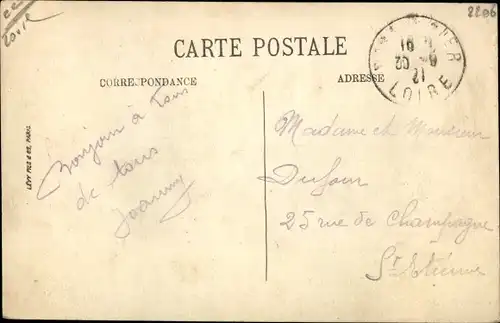 2206
CARTE POSTALE
CORRESPONDANCE
ADRESSE
LOIRE
LÉVY FILS & Cie, PARIS
Bonjour à Tous
de tous
Joanny
Madame et Monsieur
Dufour
25 rue de Champagne
St Etienne